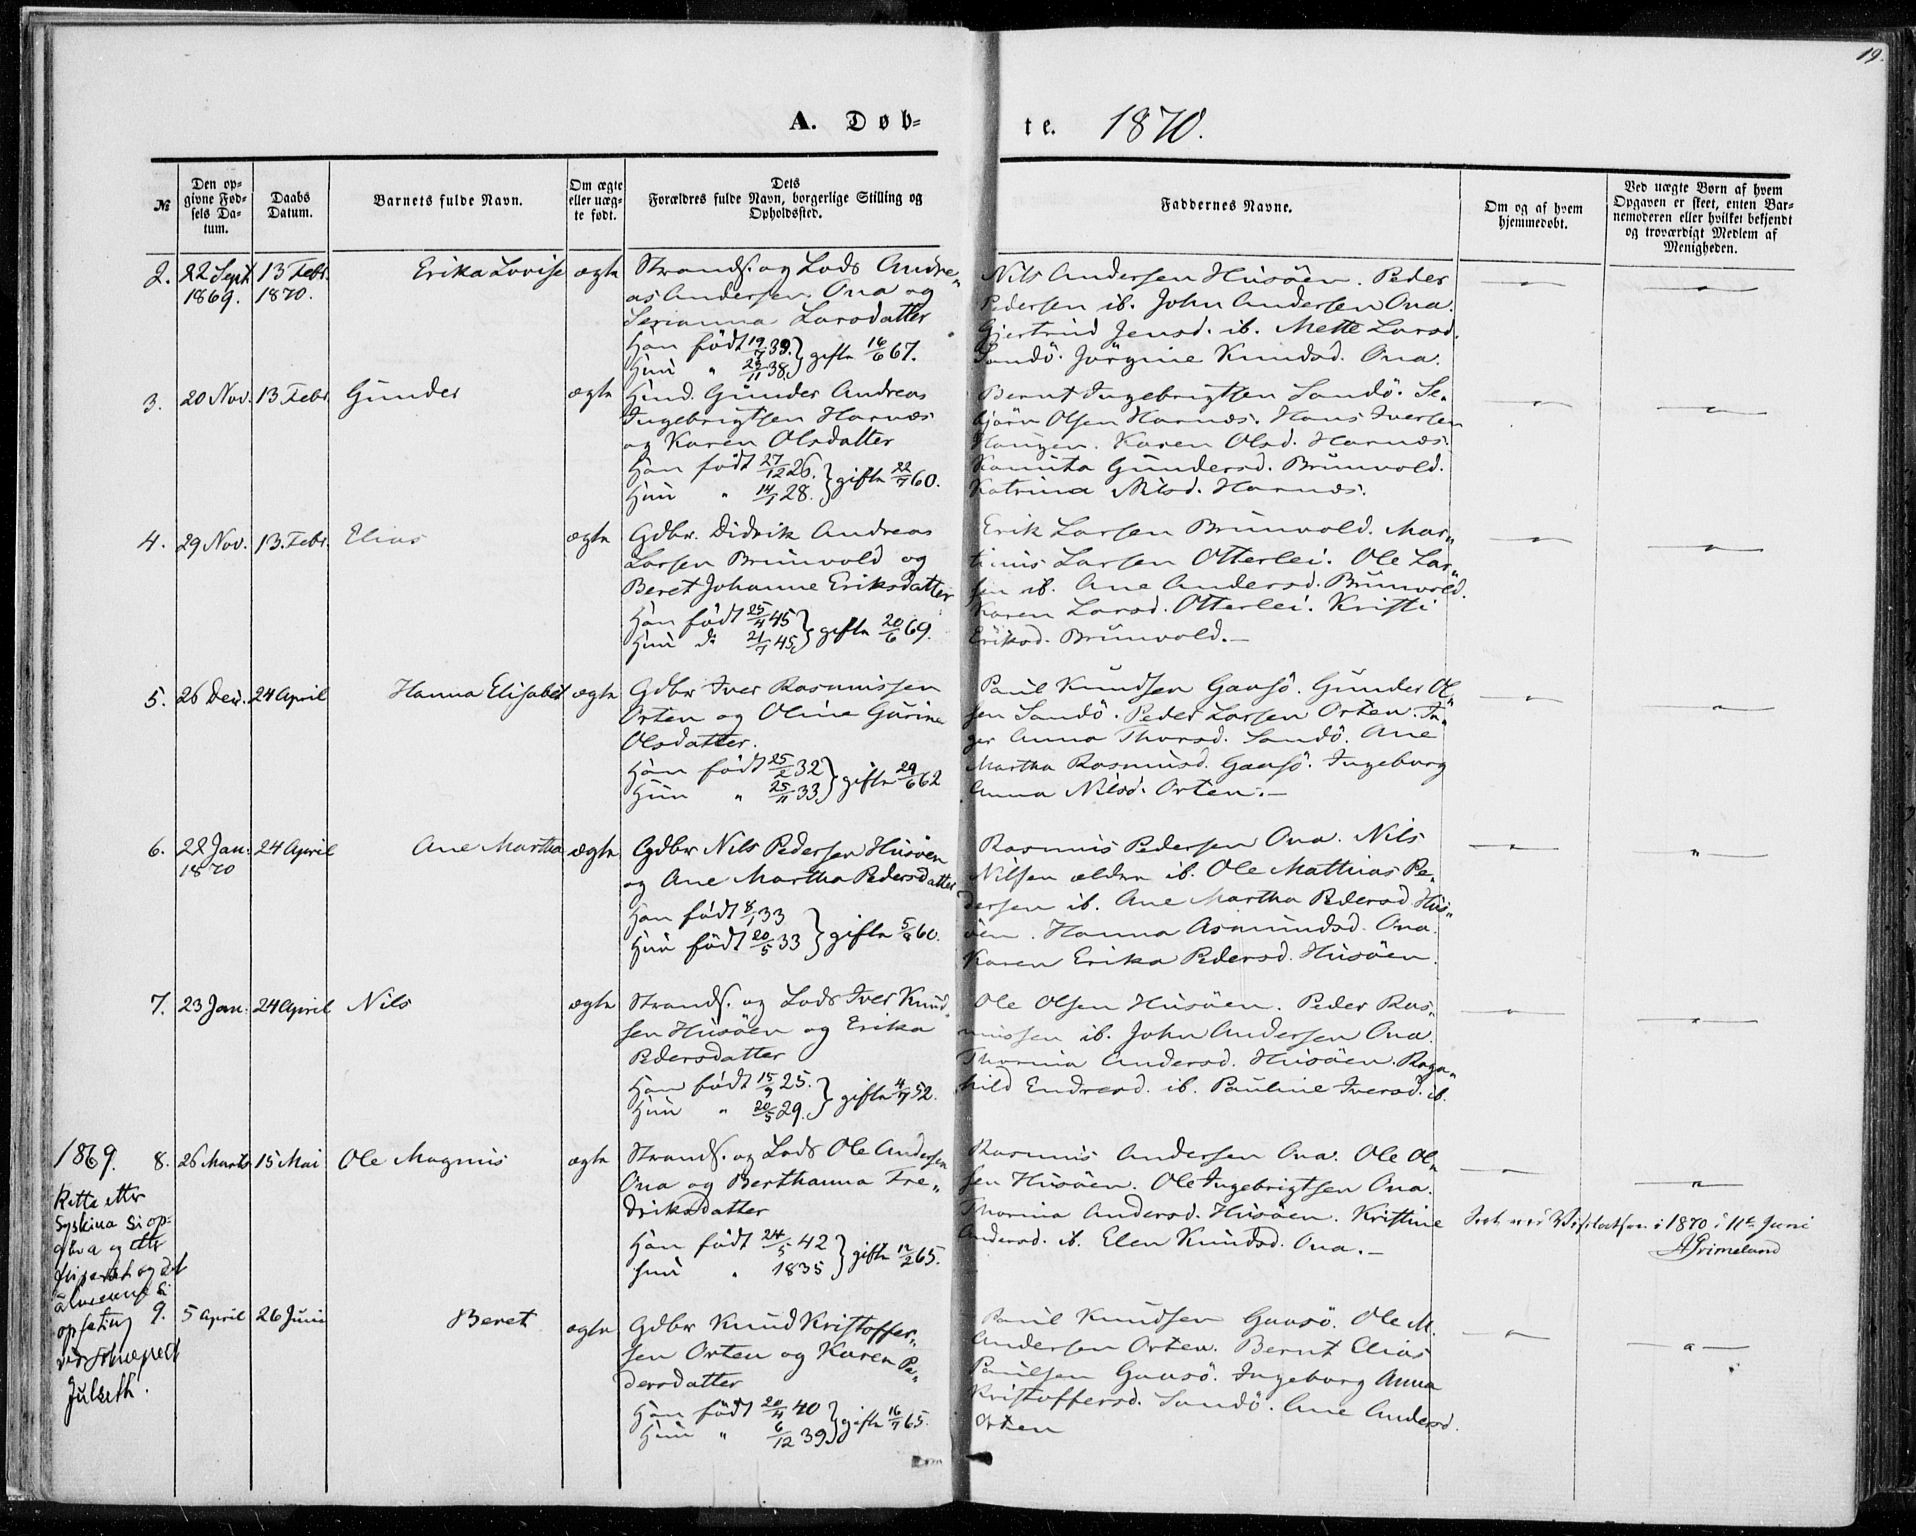 19.
A. Døb-
te. 1870.
№
Den op-
givne Fød-
sels Da-
tum.
Daabs
Datum.
Barnets fulde Navn.
Om ægte
eller uæg-
te født.
Dets
Forældres fulde Navn, borgerlige Stilling og
Opholdssted.
Faddernes Navne.
Om og af hvem
hjemmedøbt.
Ved uægte Børn af hvem
Opgaven er skeet, enten Bar-
nemoderen eller hvilket bekjendt
og troværdigt Medlem af
Menigheden.
2. 22 Sept. 1869. 13 Febr. 1870. Erika Lovise ægte
Strands. og Lods Andre-
as Andersen Ona og
Serianna Larsdatter
Han født 19/7 39.
Hun " 23/11 38. } gifte 16/6 67.
Nils Andersen Husöen. Peder
Pedersen ib. John Andersen Ona.
Gjertrud Jensd. ib. Mette Larsd.
Sandö. Jörgine Knudsd. Ona.
3. 20 Nov. 13 Febr. Gunder ægte
Husd. Gunder Andreas
Ingebrigtsen Harnæs
og Karen Olsdatter
Han født 27/12 26.
Hun " 14/1 28. } gifte 22/7 60.
Bernt Ingebrigtsen Sandö. Se-
björn Olsen Harnæs. Hans Iversen
Haugen. Karen Olsd. Harnæs.
Gundersd. Brunvold.
Katrina Nilsd. Harnæs.
4. 29 Nov. 13. Febr. Elias ægte
Gdbr. Didrik Andreas
Larsen Brunvold og
Beret Johanne Eriksdatter
Han født 25/4 45
Hun do 21/7 45. } gifte 20/6 69.
Erik Larsen Brunvold. Mar-
tinus Larsen Otterlei. Ole Lar-
sen ib. Ane Andersd. Brunvold.
Karen Larsd. Otterlei. Kristi
Eriksd. Brunvold.—
5. 26 Dec. 24 April Hanna Elisabet ægte
Gdbr Iver Rasmussen
Orten og Oline Gurine
Olsdatter.
Han født 25/2 32
Hun " 25/11 33 } gifte 29/6 62
Paul Knudsen Gaasö. Gunder Ol-
sen Sandö. Peder Larsen Orten. In-
ger Anna Thorsd. Sandö. Ane
Martha Rasmusd. Gaasö. Ingeborg
Anna Nilsd. Orten.—
6. 22 Jan. 1870 24 April Ane Martha ægte
Gdbr Nils Pedersen Husöen
og Ane Martha Pedersdatter
Han født 8/1 33
Hun født 20/5 33 } gifte 5/8 60.
Rasmus Pedersen Ona. Nils
Nilsen ældre ib. Ole Mathias Pe-
dersen ib. Ane Martha Pedersd. Hus-
öen. Hanna Asmundsd. Ona.
Karen Erika Pedersd. Husöen.
7. 23 Jan. 24 April Nils ægte
Strands. og Lods Iver Knud-
sen Husöen og Erika
Pedersdatter
Han født 15/9 25.
Hun " 20/5 29. } gifte 4/7 52.
Ole Olsen Husöen. Peder Ras-
mussen ib. John Andersen Ona.
Thorina Andersd. Husöen. Ragn-
hild Endresd. ib. Pauline Iversd. ib.
1869. 8. 26 Marts 15 Mai Ole Magnus ægte
Strands. og Lods Ole Andersen
Ona og Berthanna Fre-
driksdatter
Han født 24/5 42
Hun " 1835 } gifte 12/2 65.
Rasmus Andersen Ona. Ole Ol-
sen Husöen. Ole Ingebrigtsen Ona.
Thorina Andersd. Husöen. Kristine
Andersd. ib. Elen Knudsd. Ona.—
i 1870 11te Juni
Grimeland
Retta etter
Syskina si op-
og etter
og det
si
Julseth.
9. 5 April 26 Juni Beret ægte
Gdbr Knud Kristoffer-
sen Orten og Karen Pe-
dersdatter
Han født 20/4 40
Hun " 6/12 39 } gifte 16/7 65.
Paul Knudsen Gaasö. Ole M.
Andersen Orten. Bernt Elias
Paulsen Gaasö. Ingeborg Anna
Kristoffersd. Sandö. Ane Andersd.
Orten